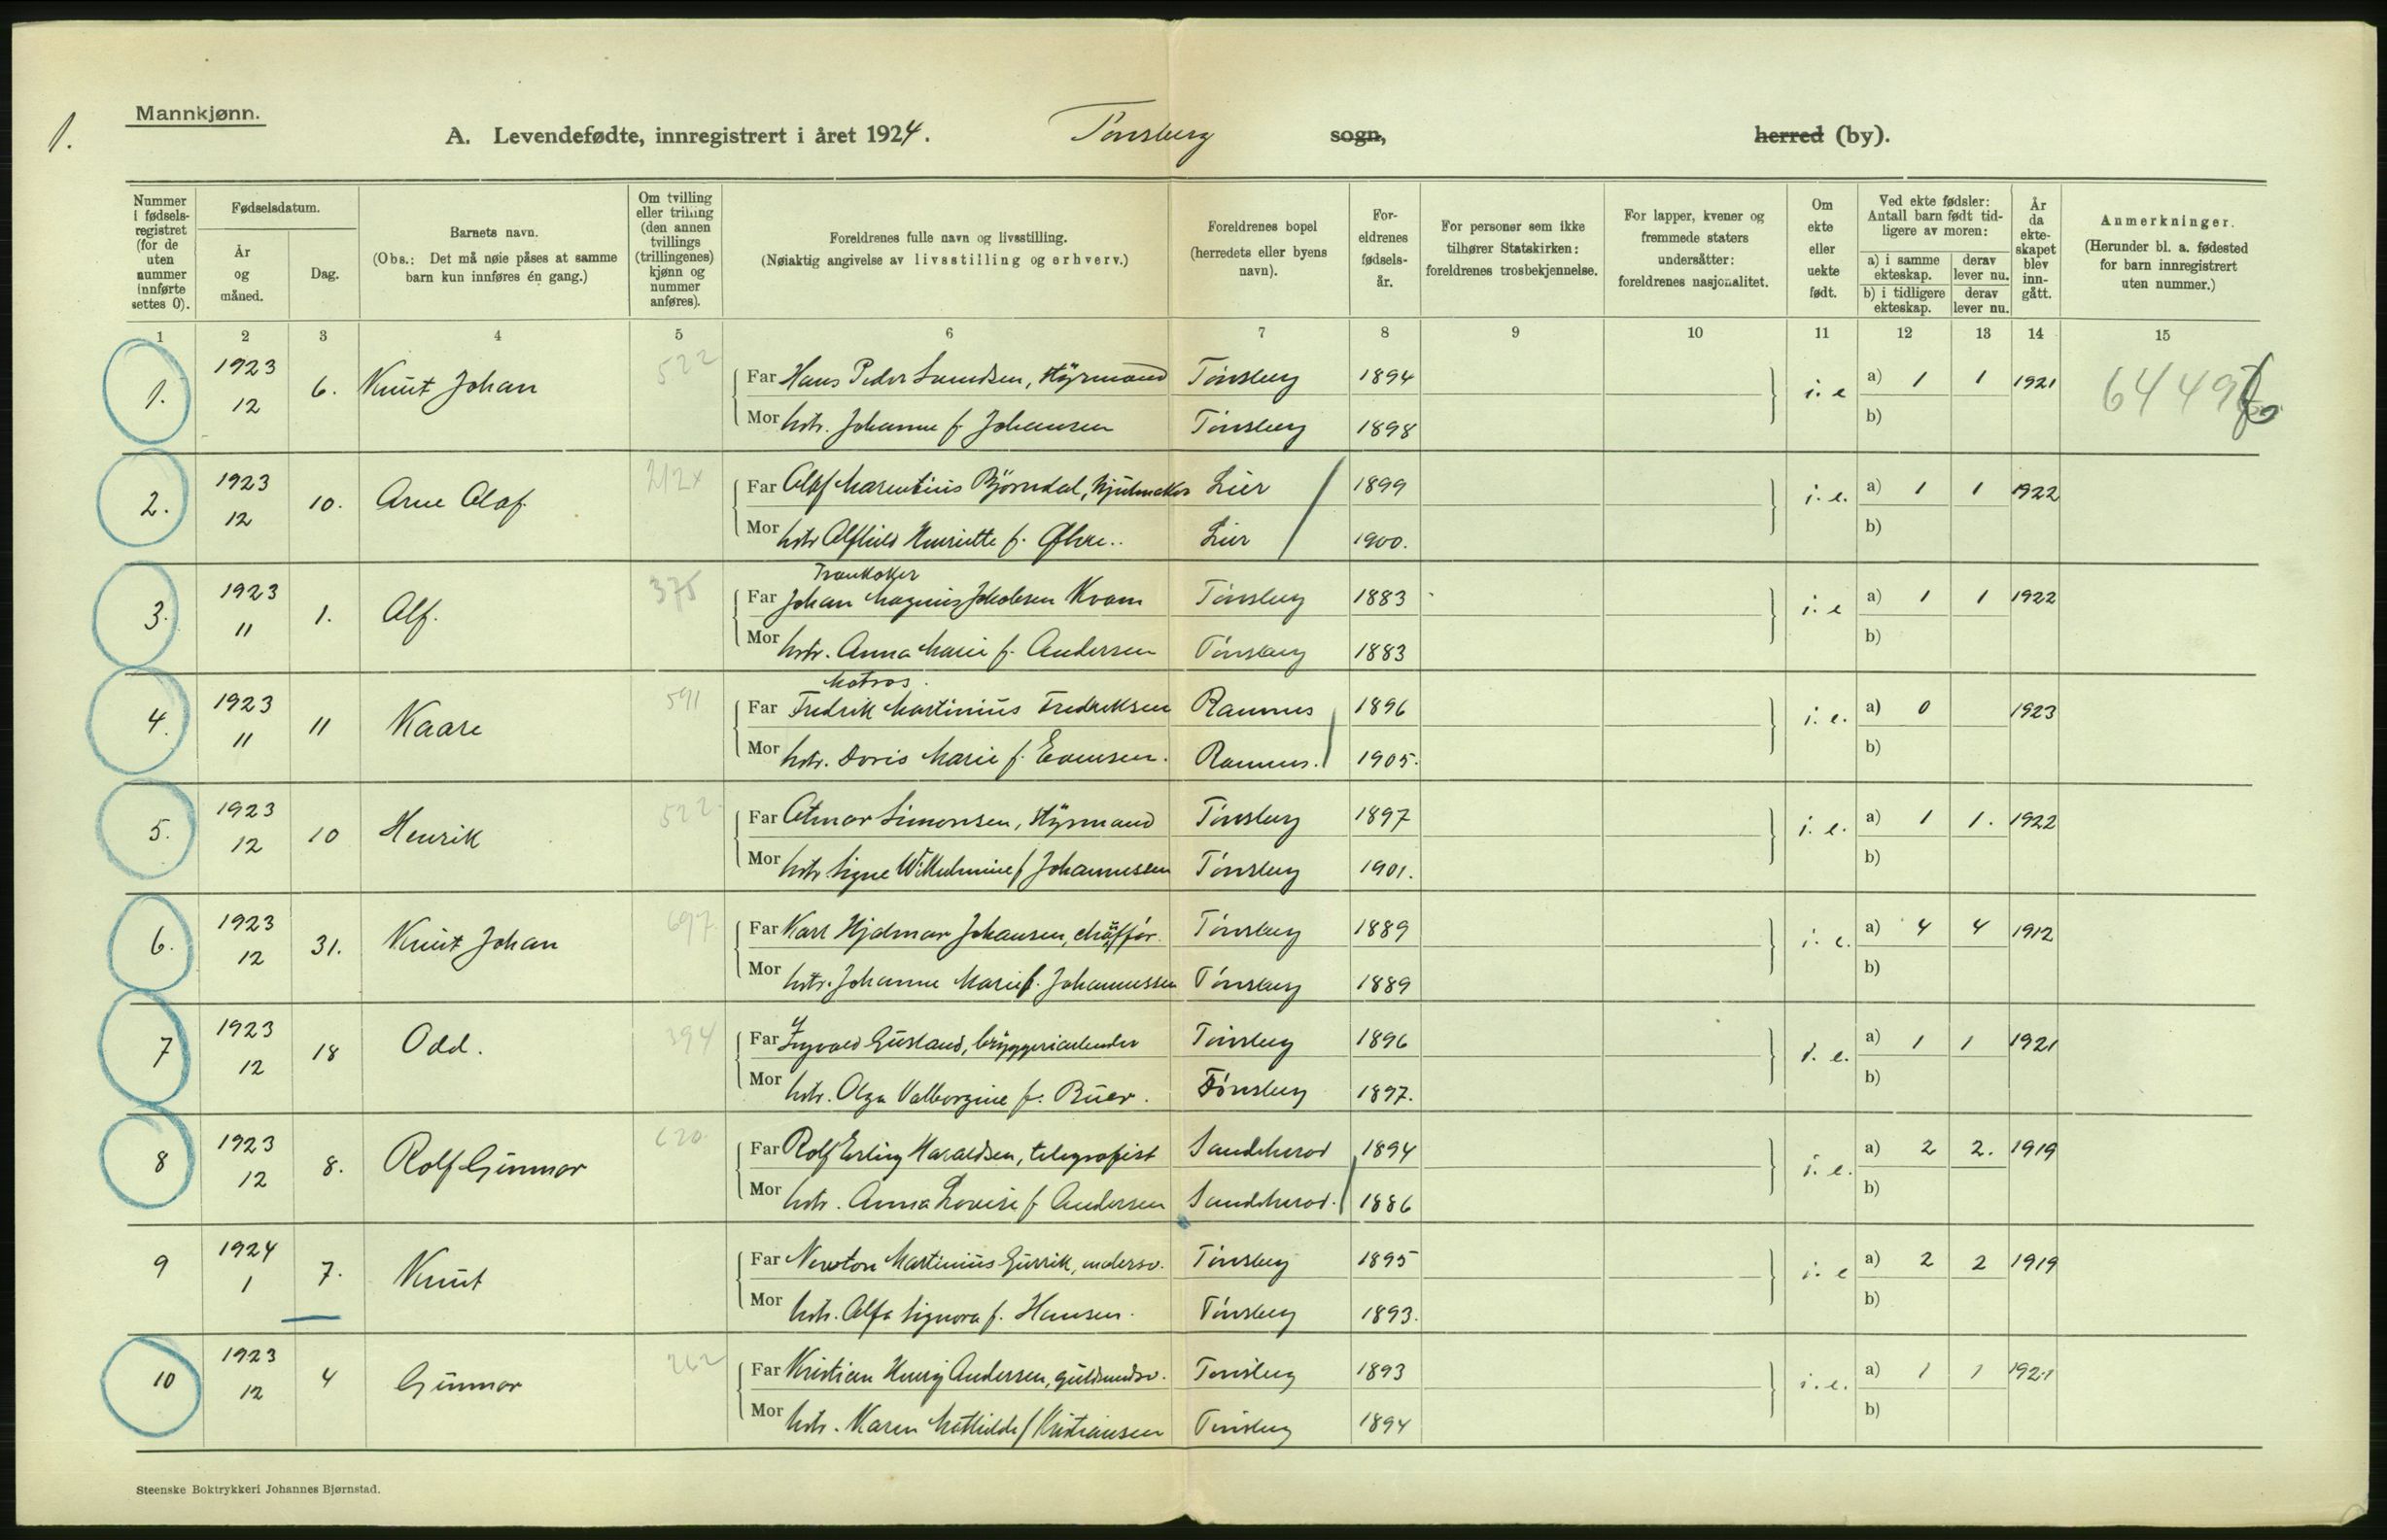 1.
Mannkjønn.
A. Levendefødte, innregistrert i året 1924. Tønsberg sogn, herred (by).
Nummer i fødselsregistret (for de uten nummer innførte settes 0).
Fødselsdatum.
År og måned.
Dag.
Barnets navn.
(Obs.: Det må nøie påses at samme barn kun innføres én gang.)
Om tvilling eller trilling (den annen tvillings (trillingenes) kjønn og nummer anføres).
Foreldrenes fulle navn og livsstilling.
(Nøiaktig angivelse av livsstilling og erhverv.)
Foreldrenes bopel (herredets eller byens navn).
Foreldrenes fødselsår.
For personer som ikke tilhører Statskirken: foreldrenes trosbekjennelse.
For lapper, kvener og fremmede staters undersåtter: foreldrenes nasjonalitet.
Om ekte eller uekte født.
Ved ekte fødsler: Antall barn født tidligere av moren:
a) i samme ekteskap. derav lever nu.
b) i tidligere ekteskap. derav lever nu.
År da ekteskapet blev inngått.
Anmerkninger.
(Herunder bl. a. fødested for barn innregistrert uten nummer.)
1 2 3 4 5 6 7 8 9 10 11 12 13 14 15
1. 1923 12 6. Knut Johan 522 Far Hans Peder Lundsen, styrmand Tønsberg 1894 i. e a) 1 1 1921 6449
Mor hstr. Johanne f. Johansen Tønsberg 1898 b)
2. 1923 12 10. Arne Olaf. 212x Far Olaf Marentius Bjørndal, hjulmaker Lier 1899 i. e. a) 1 1 1922
Mor hstr Alfhild Henriette f. Lier 1900. b)
Trankoker
3. 1923 11 1. Alf. 375 Far Johan Magnus Jakobsen Kvam Tønsberg 1883 i. e a) 1 1 1922
Mor hstr. Anna Marie f. Andersen Tønsberg 1883 b)
Matros.
4. 1923 11 11 Kaare 591 Far Fredrik Martinius Fredriksen Ramnes 1896 i. e. a) 0 1923
Mor hstr. Doris Marie f. Evensen. Ramnes. 1905. b)
5. 1923 12 10 Henrik 522 Far Simonsen, styrmand Tønsberg 1897 i. e. a) 1 1. 1922
Mor hstr Signe Wilhelmine f Johannessen Tønsberg 1901. b)
6. 1923 12 31. Knut Johan 697 Far Karl Hjalmar Johansen, chauffør. Tønsberg 1889 i. e. a) 4 4 1912
Mor hstr. Johanne Marie f. Johannessen Tønsberg 1889 b)
7 1923 12 18 Odd. 394 Far Yngvald Gusland, bryggeriarbeider Tønsberg 1896 i. e. a) 1 1 1921
Mor hstr. Olga Valborgine f. Buer. Tønsberg 1897. b)
8 1923 12 8. Rolf Gunnar 620 Far Rolf Erling Haraldsen, telegrafist Sandeherod 1894 i. e. a) 2 2. 1919
Mor hstr. Anna Lovise f Andersen Sandeherod. 1886 b)
9 1924 1 7. Knut Far Newton Martinius Gurrik, malersv. Tønsberg 1895 i. e a) 2 2 1919
Mor hstr. Alfa Signora f. Hansen. Tønsberg 1893. b)
10 1923 12 4 Gunnar 262 Far Kristian Henry Andersen, guldsmedsv. Tønsberg 1893 i. e. a) 1 1 1921
Mor hstr. Karen Mathilde f Kristiansen Tønsberg 1894 b)
Steenske Boktrykkeri Johannes Bjørnstad.